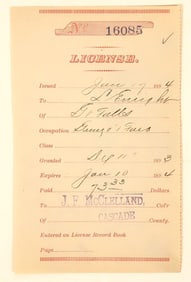 No 16085
LICENSE.
Issued Jany 9 1894
To
Of Gt Falls
Occupation
Class
Granted 1893
Expires Jan 10 1894
Paid 73 33 Dollars
To J. F. McCLELLAND, Col'r
Of CASCADE County.
Entered on License Record Book
Page